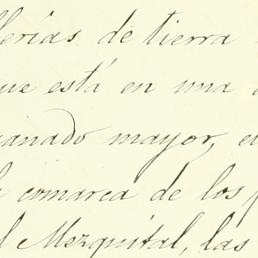 llerías de tierra
que está en una
ganado mayor, e
comarca de los
l Mezquital, las